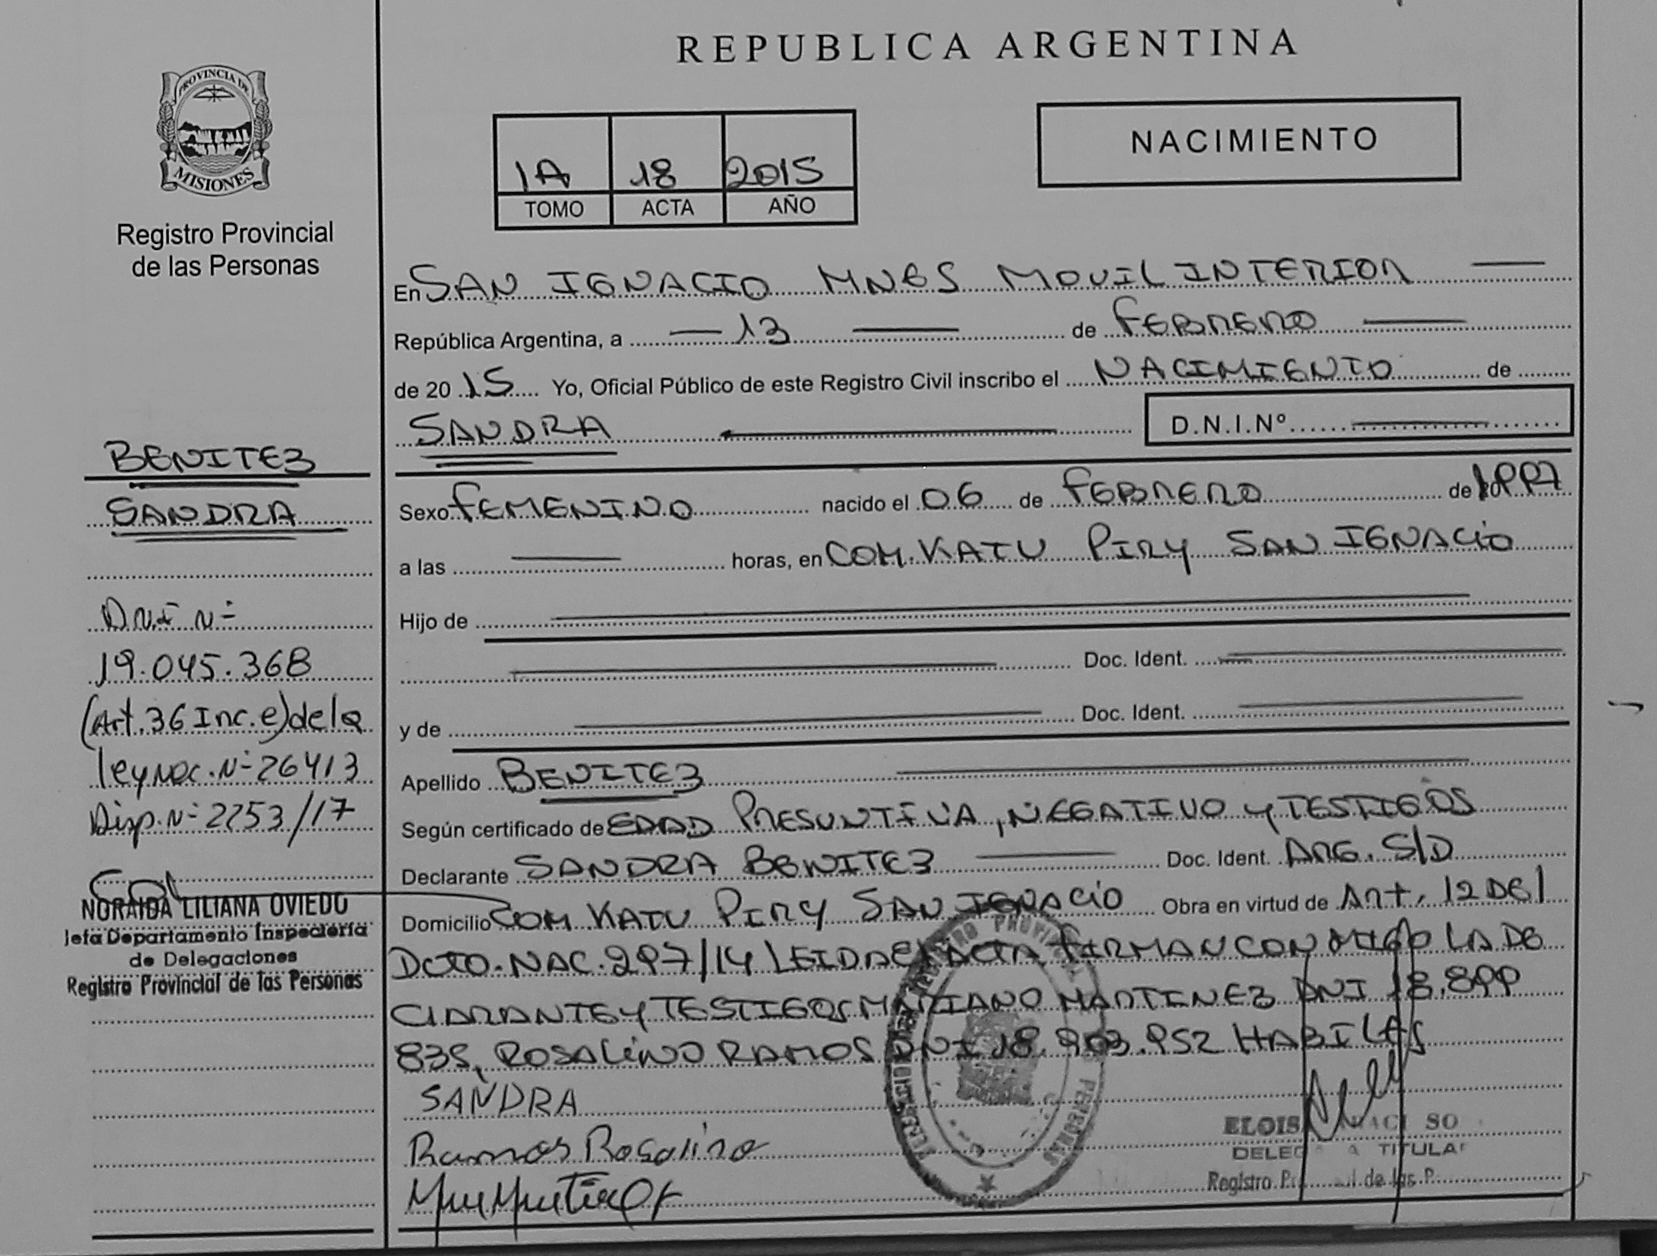 REPUBLICA ARGENTINA
PROVINCIA DE
MISIONES
Registro Provincial
de las Personas
1A 18 2015
TOMO ACTA AÑO
NACIMIENTO
En SAN IGNACIO MNES MOVIL INTERIOR
República Argentina, a 13 de FEBRERO
de 2015 Yo, Oficial Público de este Registro Civil inscribo el NACIMIENTO de
SANDRA
D.N.I.Nº
BENITEZ
SANDRA
DNI Nº
19.045.368
(Art. 36 Inc. e) de la
ley Nac. Nº 26413
Disp. Nº 2253/17
NORAIDA LILIANA OVIEDO
Jefa Departamento Inspectoría
de Delegaciones
Registro Provincial de las Personas
Sexo FEMENINO nacido el 06 de FEBRERO de 1997
a las horas, en COM. KATU PIRY SAN IGNACIO
Hijo de
Doc. Ident.
y de Doc. Ident.
Apellido BENITEZ
Según certificado de EDAD PRESUNTIVA, NEGATIVO Y TESTIGOS
Declarante SANDRA BENITEZ Doc. Ident. ARG. S/D
Domicilio COM KATU PIRY SAN IGNACIO Obra en virtud de Art. 12 DEl
DCTO. NAC. 297/14 LEIDA El ACTA FIRMAN CONMIGO LA DE
CLARANTE Y TESTIGOS MARIANO MARTINEZ DNI 18.899
835, ROSALINO RAMOS DNI 18.903.952 HABILES
SANDRA
Ramos Rosalino
ELOIS
DELEG A TITULAR
Registro P de las P